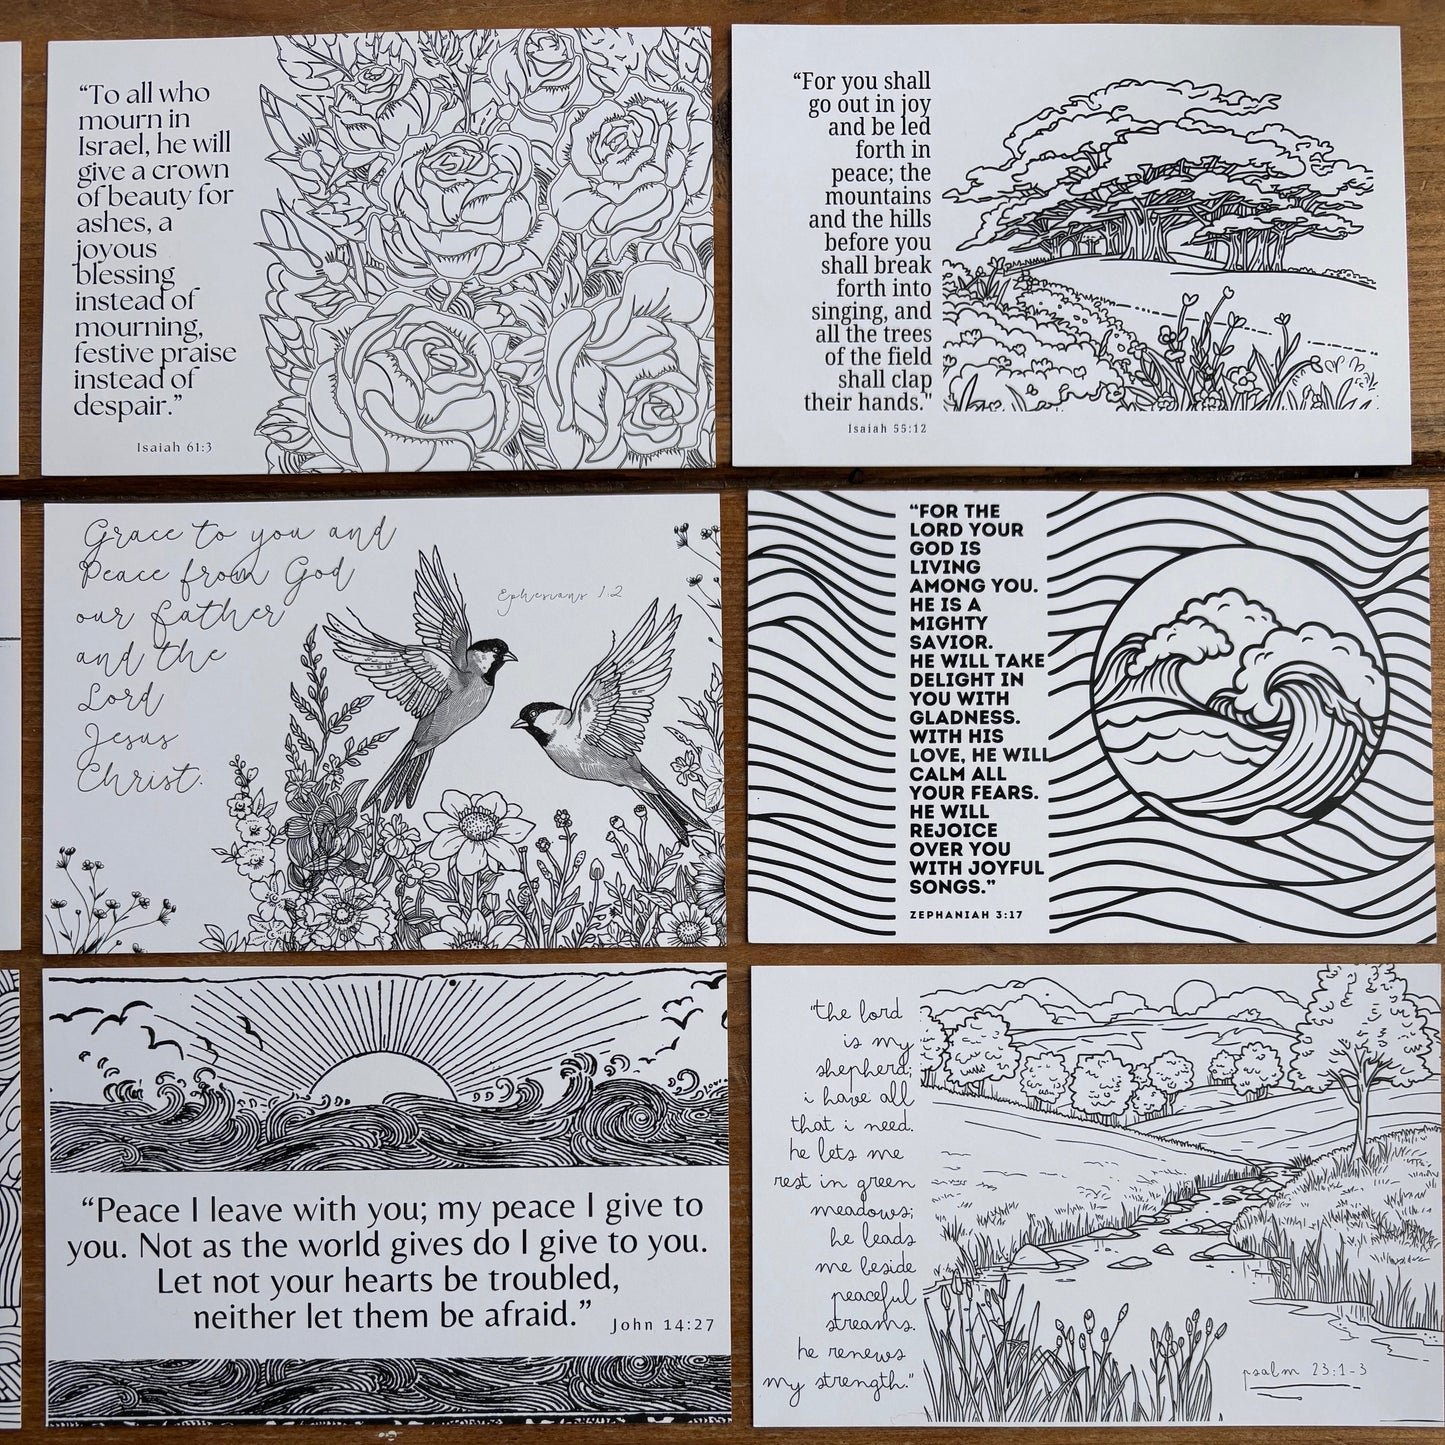 “To all who
mourn in
Israel, he will
give a crown
of beauty for
ashes, a
joyous
blessing
instead of
mourning,
festive praise
instead of
despair.”
Isaiah 61:3
“For you shall
go out in joy
and be led
forth in
peace; the
mountains
and the hills
before you
shall break
forth into
singing, and
all the trees
of the field
shall clap
their hands."
Isaiah 55:12
Grace to you and
Peace from God
our Father
and the
Lord
Jesus
Christ.
Ephesians 1:2
“FOR THE
LORD YOUR
GOD IS
LIVING
AMONG YOU.
HE IS A
MIGHTY
SAVIOR.
HE WILL TAKE
DELIGHT IN
YOU WITH
GLADNESS.
WITH HIS
LOVE, HE WILL
CALM ALL
YOUR FEARS.
HE WILL
REJOICE
OVER YOU
WITH JOYFUL
SONGS.”
ZEPHANIAH 3:17
“Peace I leave with you; my peace I give to
you. Not as the world gives do I give to you.
Let not your hearts be troubled,
neither let them be afraid.”
John 14:27
"the lord
is my
shepherd;
i have all
that i need.
he lets me
rest in green
meadows;
he leads
me beside
peaceful
streams.
he renews
my strength."
psalm 23:1-3